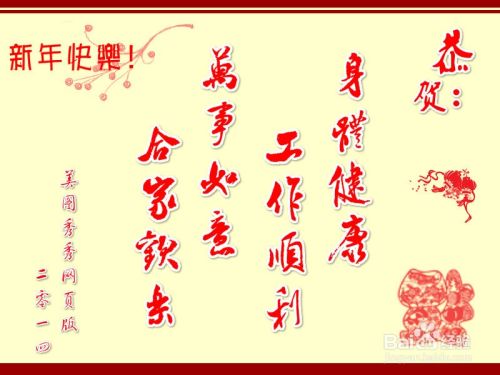 新年快樂!
恭贺:
身體健康
工作順利
萬事如意
合家欢乐
美图秀秀网页版
二零一四
Baidu经验
jingyan.baidu.com